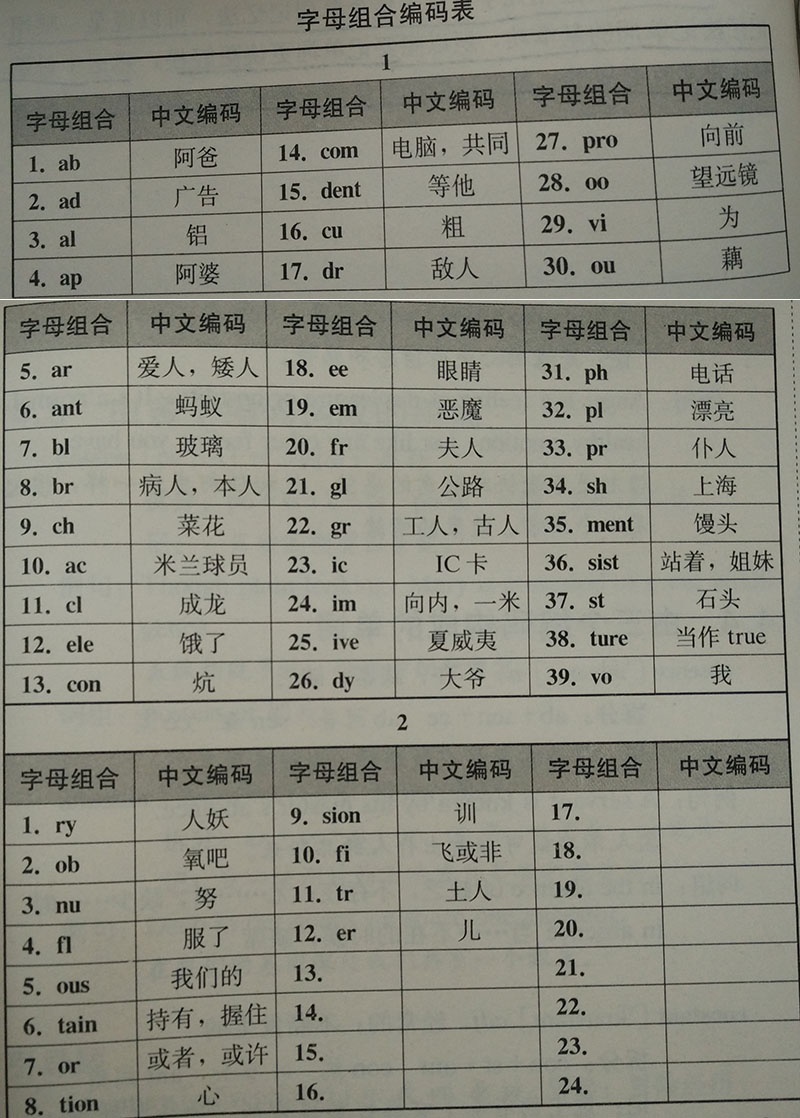 字母组合编码表
1
字母组合 中文编码 字母组合 中文编码 字母组合 中文编码
1. ab 阿爸 14. com 电脑，共同 27. pro 向前
2. ad 广告 15. dent 等他 28. oo 望远镜
3. al 铝 16. cu 粗 29. vi 为
4. ap 阿婆 17. dr 敌人 30. ou 藕
字母组合 中文编码 字母组合 中文编码 字母组合 中文编码
5. ar 爱人，矮人 18. ee 眼睛 31. ph 电话
6. ant 蚂蚁 19. em 恶魔 32. pl 漂亮
7. bl 玻璃 20. fr 夫人 33. pr 仆人
8. br 病人，本人 21. gl 公路 34. sh 上海
9. ch 菜花 22. gr 工人，古人 35. ment 馒头
10. ac 米兰球员 23. ic IC卡 36. sist 站着，姐妹
11. cl 成龙 24. im 向内，一米 37. st 石头
12. ele 饿了 25. ive 夏威夷 38. ture 当作 true
13. con 炕 26. dy 大爷 39. vo 我
2
字母组合 中文编码 字母组合 中文编码 字母组合 中文编码
1. ry 人妖 9. sion 训 17.
2. ob 氧吧 10. fi 飞或非 18.
3. nu 努 11. tr 土人 19.
4. fl 服了 12. er 儿 20.
5. ous 我们的 13. 21.
6. tain 持有，握住 14. 22.
7. or 或者，或许 15. 23.
8. tion 心 16. 24.